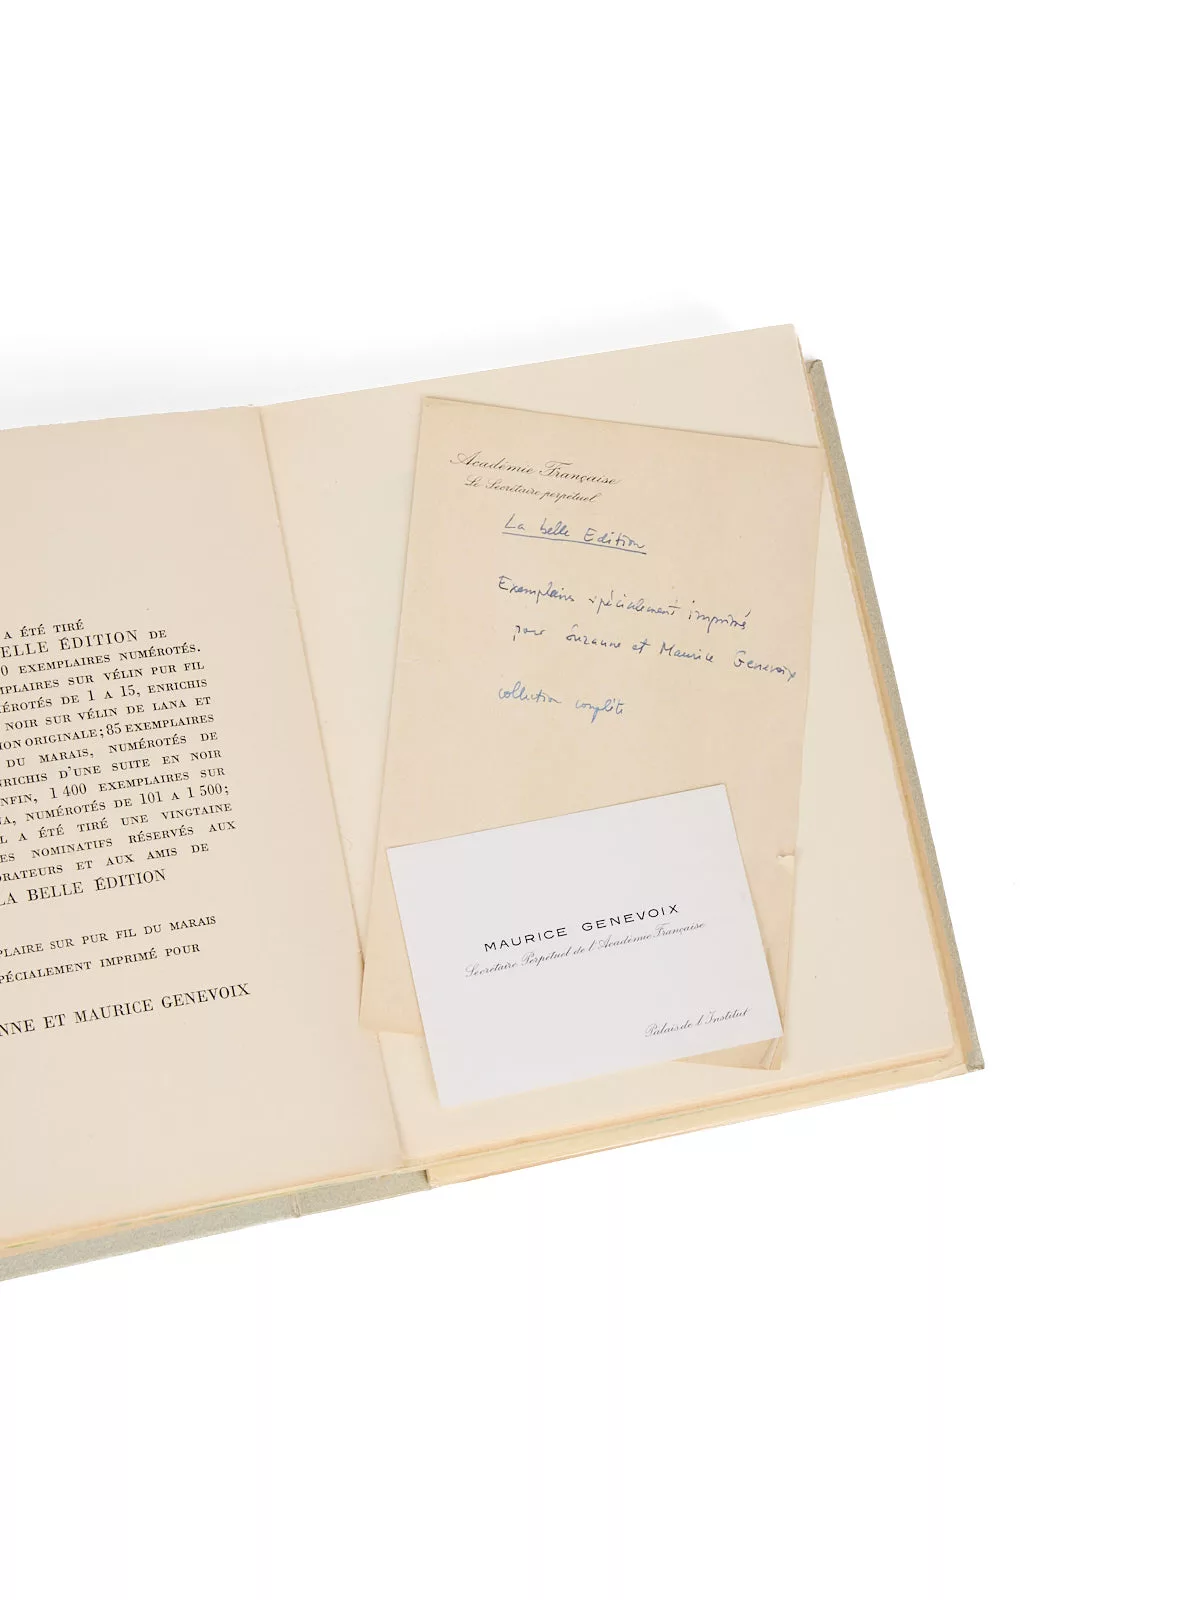 A ÉTÉ TIRÉ
ELLE ÉDITION DE
0 EXEMPLAIRES NUMÉROTÉS.
MPLAIRES SUR VÉLIN PUR FIL
MÉROTÉS DE 1 A 15, ENRICHIS
NOIR SUR VÉLIN DE LANA ET
ION ORIGINALE; 85 EXEMPLAIRES
DU MARAIS, NUMÉROTÉS DE
NRICHIS D'UNE SUITE EN NOIR
NFIN, 1 400 EXEMPLAIRES SUR
NA, NUMÉROTÉS DE 101 A 1 500;
L A ÉTÉ TIRÉ UNE VINGTAINE
ES NOMINATIFS RÉSERVÉS AUX
ORATEURS ET AUX AMIS DE
LA BELLE ÉDITION
PLAIRE SUR PUR FIL DU MARAIS
PÉCIALEMENT IMPRIMÉ POUR
NNE ET MAURICE GENEVOIX
Académie Française
Le Secrétaire perpétuel
La belle Edition
Exemplaires spécialement imprimés
pour Suzanne et Maurice Genevoix
collection complète
MAURICE GENEVOIX
Secrétaire Perpétuel de l'Académie Française
Palais de l'Institut